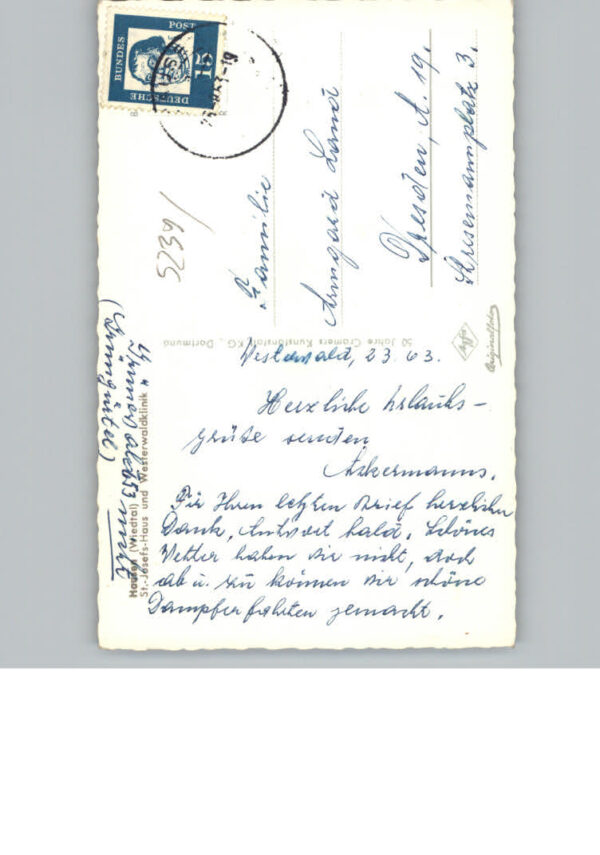 DEUTSCHE
BUNDES
POST
15
Familie
Armgard Land
Dresden, A. 19.
Stresemannplatz 3.
5239/
50 Jahre Cramers Kunstanstalt KG., Dortmund
Agfa
Originalfoto
Westerwald, 23. 63.
Herzliche Urlaubs-
grüße senden
Ackermanns.
Für Ihren letzten Brief herzlichen
Dank, Antwort bald. Schönes
Wetter haben wir nicht, doch
ab u. zu können wir schöne
Dampferfahrten gemacht.
Hausen (Wiedtal)
St.-Josefs-Haus und Westerwaldklinik